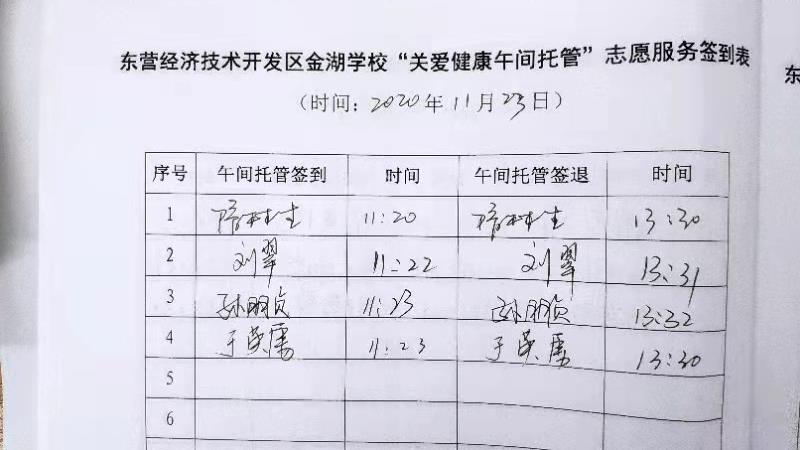 东营经济技术开发区金湖学校“关爱健康午间托管”志愿服务签到表
东
（时间：2020年11月23日）
序号 午间托管签到 时间 午间托管签退 时间
1 11:20 13:30
2 刘翠 11:22 刘翠 13:31
3 11:23 13:32
4 于荣 11:23 于荣 13:30
5
6